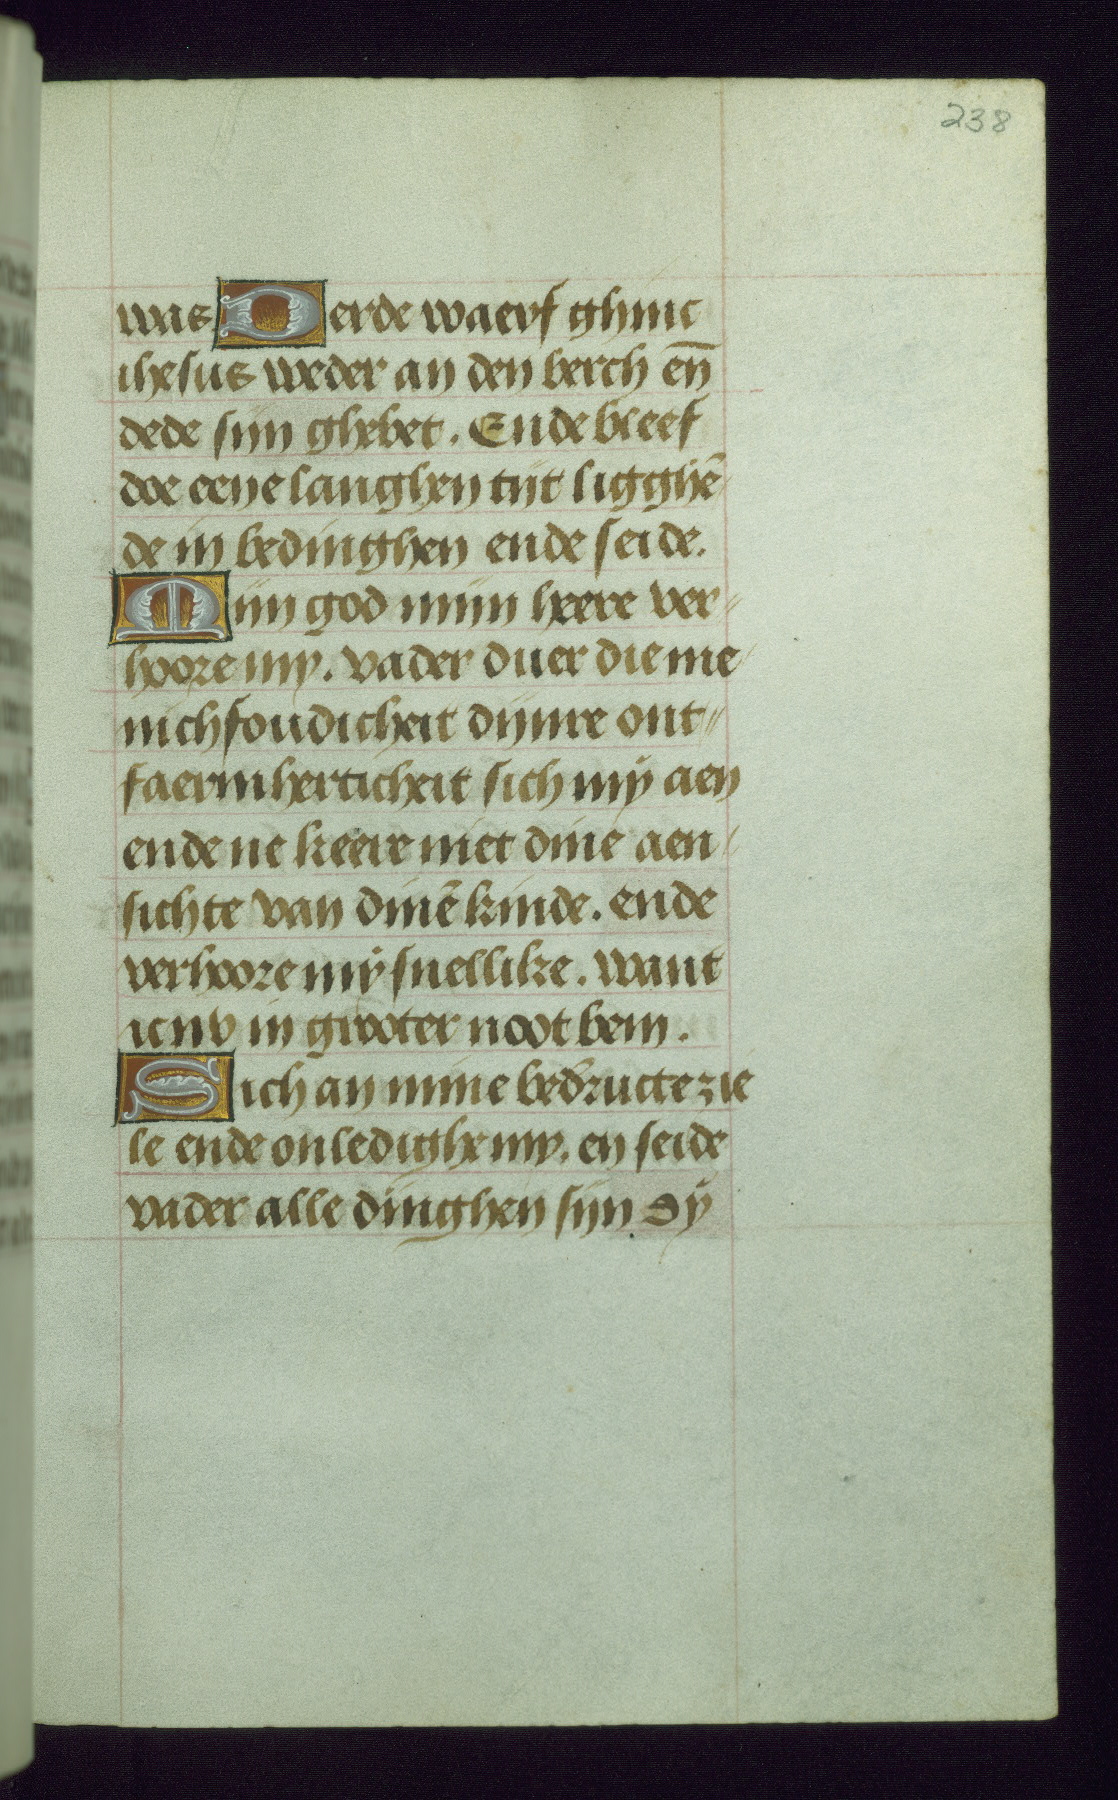 238
was Derde waerf ghinc
ihesus weder an den berch eñ
dede sijn ghebet. Ende bleef
doe eene langhen tijt ligghē
de in bedinghen ende seide.
Mijn god mijn heere ver-
hoore my. vader duer die me
nichfoudicheit dijnre ont-
faermherticheit sich mÿ aen
ende ne keere niet dine aen
sichte van dinē kinde. ende
verhoore mÿ snellike. want
ic nv in grooter noot bem.
Sich an mine bedructe zie
le ende onledighe my. en seide
vader alle dinghen sijn dÿ